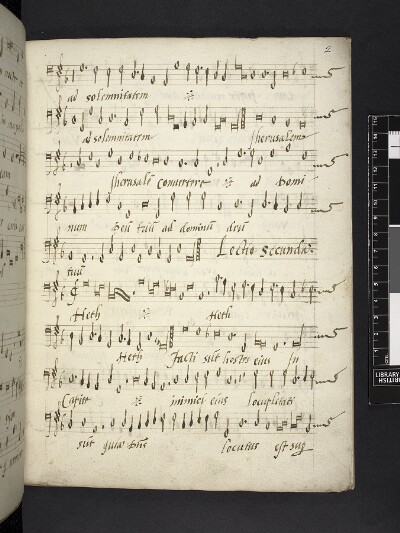 2
ad solemnitatem
ad solemnitatem Jherusalem
Jherusalē Convertere ad Domi
num Deū tuū ad dominū deū
Lectio Secunda
tuū
Heth Heth
Heth Facti sūt hostes eius in
Capite inimici eius locupletati
sūt quia Dn̄s locutus est sup
LIBRARY